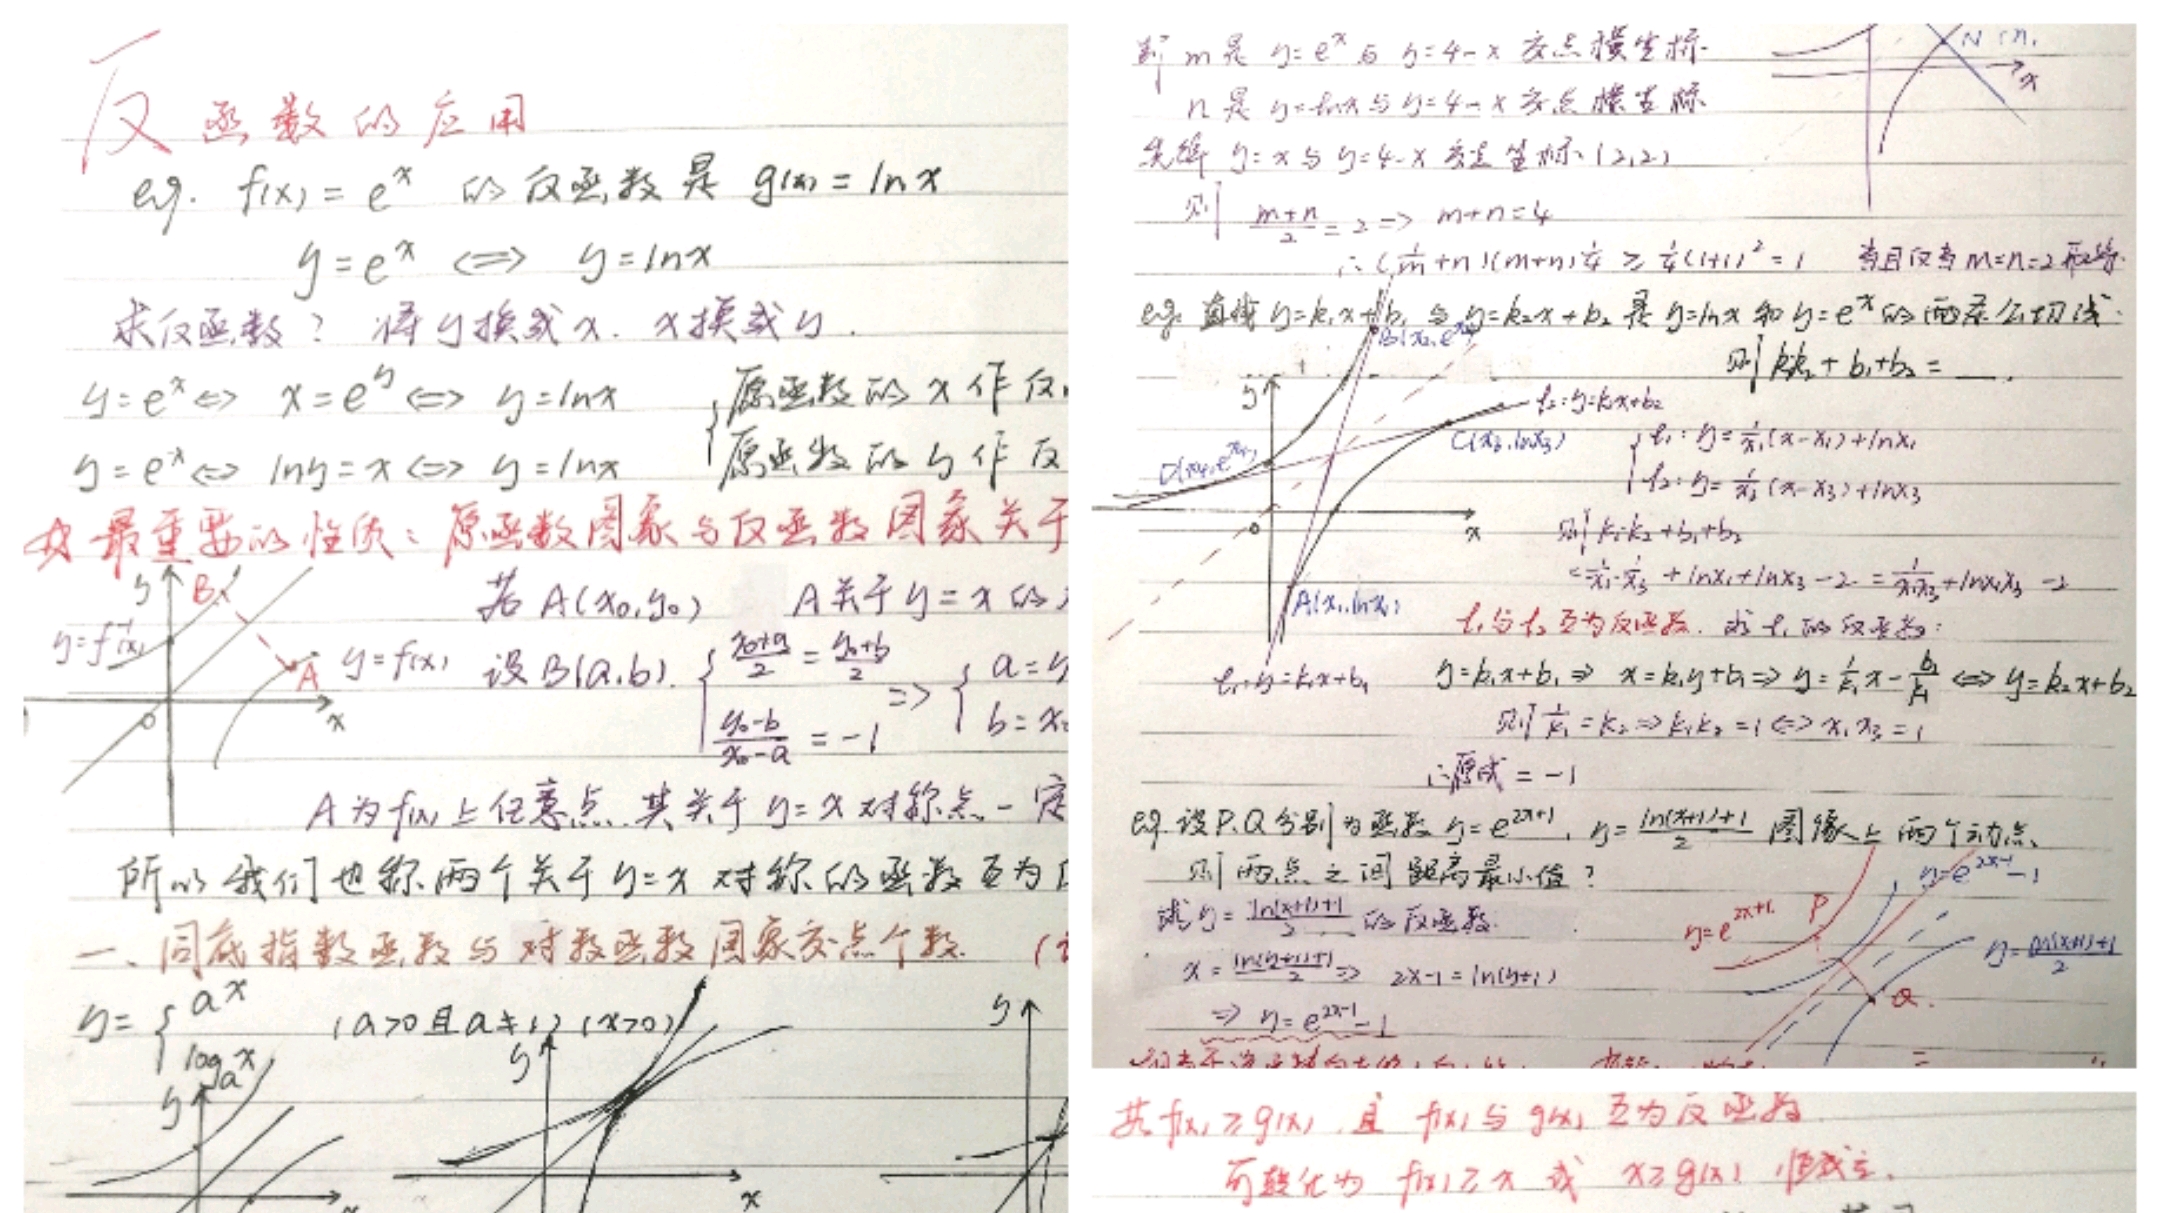 反函数的应用
eg. f(x) = e^x 的反函数是 g(x) = lnx
y = e^x <=> y = lnx
求反函数? 将y换成x. x换成y.
y = e^x <=> x = e^y <=> y = lnx
原函数的x作反
y = e^x <=> lny = x <=> y = lnx
原函数的y作反
☆最重要的性质: 原函数图象与反函数图象关于
y B
若 A(x₀,y₀) A关于 y = x 的
y = f⁻¹(x)
A y = f(x) 设 B(a,b). { (x₀+a)/2 = (y₀+b)/2
(y₀-b)/(x₀-a) = -1
=> { a = y
b = x₀
O x
A为f(x)上任意点. 其关于 y = x 对称点一定
所以我们也称两个关于 y = x 对称的函数互为
一、同底指数函数与对数函数图象交点个数.
y = { a^x
log_a x
(a>0 且 a≠1) (x>0)
y y y
x x
则 m 是 y = e^x 与 y = 4-x 交点横坐标.
n 是 y = lnx 与 y = 4-x 交点横坐标
N(n,
x
y = x 与 y = 4-x 交点坐标 (2,2)
则 (m+n)/2 = 2 => m+n = 4
∴ (1/m + n)(m+n)1/4 ≥ 1/4(1+1)² = 1 当且仅当 m=n=2 取等.
eg. 直线 y = k₁x+b₁ 与 y = k₂x+b₂ 是 y = lnx 和 y = e^x 的两条公切线.
则 k₁k₂ + b₁+b₂ = __.
B(x₂,e^x₂)
y
l₂: y=k₂x+b₂
C(x₃,lnx₃)
D(x₄,e^x₄)
{ l₁: y = 1/x₁ (x-x₁)+lnx₁
l₂: y = 1/x₃ (x-x₃)+lnx₃
o x
则 k₁k₂+b₁+b₂
= 1/x₁·1/x₃ + lnx₁+lnx₃ -2 = 1/x₁x₃ + lnx₁x₃ -2
A(x₁,lnx₁)
l₁与l₂互为反函数. 求l₁的反函数:
l₁: y=k₁x+b₁
y=k₁x+b₁ => x = k₁y+b₁ => y = 1/k₁ x - b₁/k₁ <=> y = k₂x+b₂
则 1/k₁ = k₂ => k₁k₂ = 1 <=> x₁x₃ = 1
∴原式 = -1
eg. 设P.Q分别为函数 y = e^(2x+1), y = (ln(x+1)+1)/2 图像上两个动点.
则两点之间距离最小值?
y = e^(2x-1) - 1
求 y = (ln(x+1)+1)/2 的反函数.
y = e^(2x+1) P
x = (ln(y+1)+1)/2 => 2x-1 = ln(y+1)
y = (ln(x+1)+1)/2
Q
=> y = e^(2x-1) - 1
共 f(x) ≥ g(x) 且 f(x) 与 g(x) 互为反函数
可转化为 f(x) ≥ x 或 x ≥ g(x) 恒成立.